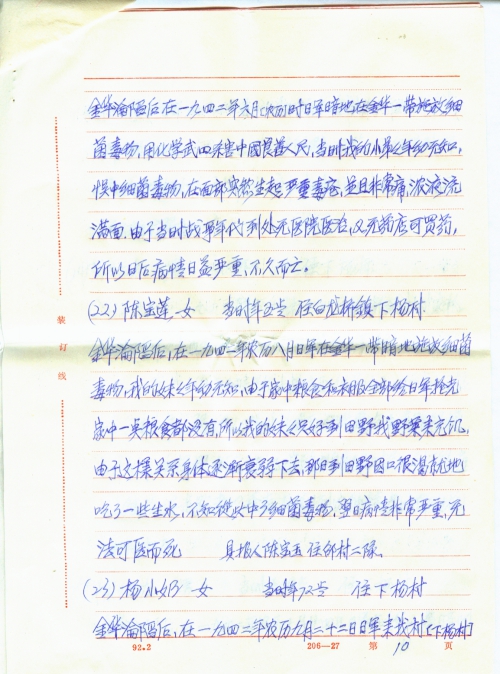 金华沦陷后在一九四二年六月(农历)时日军暗地在金华一带施放细
菌毒物,用化学武器杀害中国畏善人民,当时我的小弟年幼无知,
误中细菌毒物,在面部突然生起严重毒疮,并且非常痛,浓液流
满面.由于当时战争年代到处无医院医治,又无药店可买药,
所以日后病情日益严重,不久而亡。
(22) 陈宝莲 女 当时年 岁 住白龙桥镇下杨村
金华沦陷后,在一九四二年农历八月日军在金华一带暗地施放细菌
毒物,我的妹年幼无知,由于家中粮食和衣服全部给日军抢光
家中一点粮食都没有,所以我的妹只好到田野找野菜来充饥,
由于这样关系身体逐渐衰弱下去,那日到田野因口很渴就地
吃了一些生水,不知从此中了细菌毒物,翌日病情非常严重,无
法可医而死 具报人陈宝玉 住邵村二队
(23) 杨小奶 女 当时年72岁 住下杨村
金华沦陷后,在一九四二年农历九月二十二日日军来我村(下杨村)
装订线
92.2 206—27 第 10 页